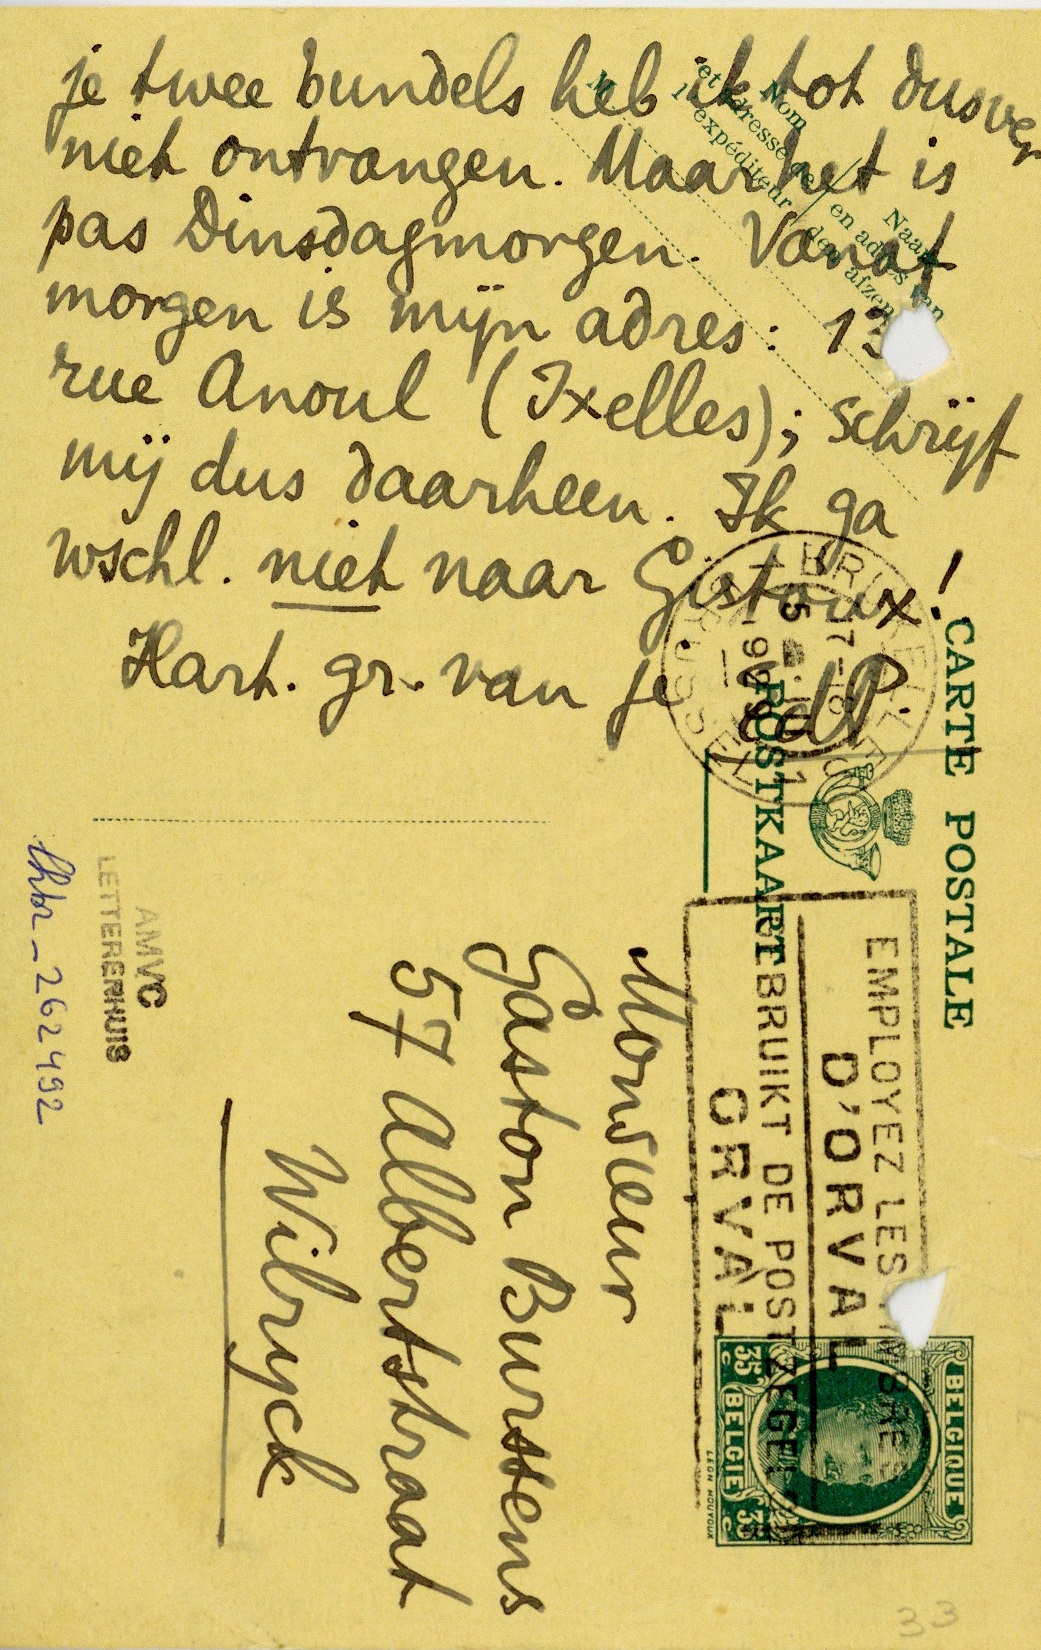 je twee bundels heb ik tot dusver
niet ontvangen. Maar het is
pas Dinsdagmorgen. Vanaf
morgen is mijn adres: 13
rue Anoul (Ixelles); schrijf
mij dus daarheen. Ik ga
wschl. niet naar Gistoux!
Hart. gr. van je EdP.
Nom
et adresse de
l'expéditeur
Naam
en adres van
den afzender
CARTE POSTALE
POSTKAART
EMPLOYEZ LES TIMBRES
D'ORVAL
GEBRUIKT DE POSTZEGELS
ORVAL
BELGIQUE
BELGIE
35 c
35 c
Monsieur
Gaston Burssens
57 Albertstraat
Wilryck
AMVC
LETTERENHUIS
lhbr_262492
33